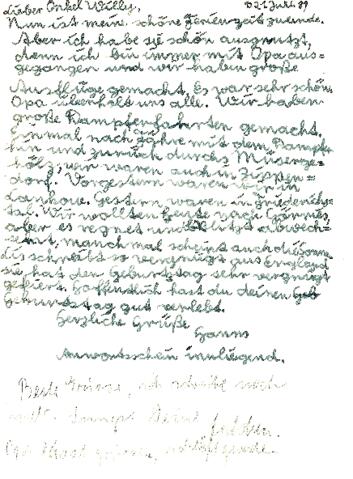 Lieber Onkel Willy,
Nun ist meine schöne Ferienzeit zuende.
Aber ich habe sie schön ausgenutzt,
denn ich bin immer mit Opa aus=
gegangen und wir haben große
Ausflüge gemacht. Es war sehr schön
Opa überholt uns alle. Wir haben
große Dampferfahrten gemacht.
Einmal nach mit dem Dampfer
hin und zurück durchs
holz, wir waren auch in Zippen=
dorf. Vorgestern waren wir in
Gestern waren in Friedrichs=
tal. Wir wollten heute nach
aber es regnet und blitzt abwech=
selnd, manchmal scheint auch die Sonne
schreibt so vergnügt aus England
sie hat den Geburtstag sehr vergnügt
gefeiert. Hoffentlich hast du deinen Geb
Geburtstag gut verlebt.
Herzliche Grüße
Hanns
Antwortsschein innliegend.
Beste Grüsse, ich schreibe noch